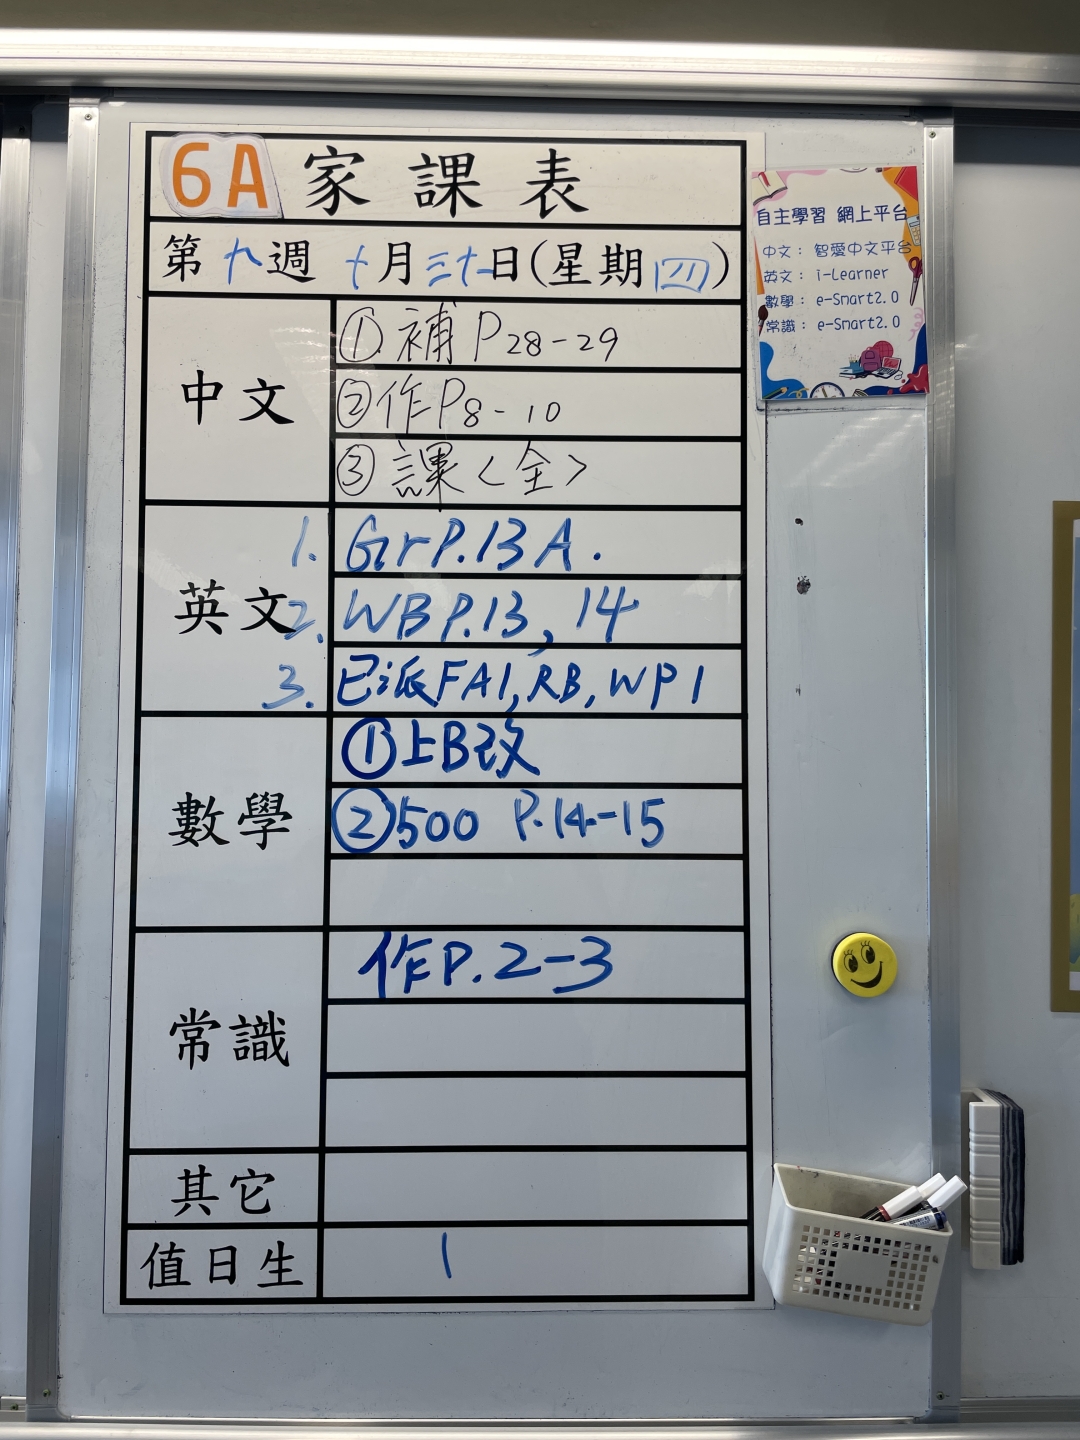 6A 家課表
第九週 十月三十一日(星期四)
中文
①補P28-29
②作P8-10
③課<全>
英文
1. GrP.13A.
2. WBP.13, 14
3. 已派FA1, RB, WP1
數學
①上B改
②500 P.14-15
常識
作P.2-3
其它
值日生 1
自主學習 網上平台
中文：智愛中文平台
英文：i-Learner
數學：e-Smart2.0
常識：e-Smart2.0